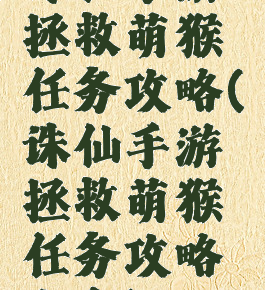 拯救萌猴
任务攻略(
诛仙手游
拯救萌猴
任务攻略